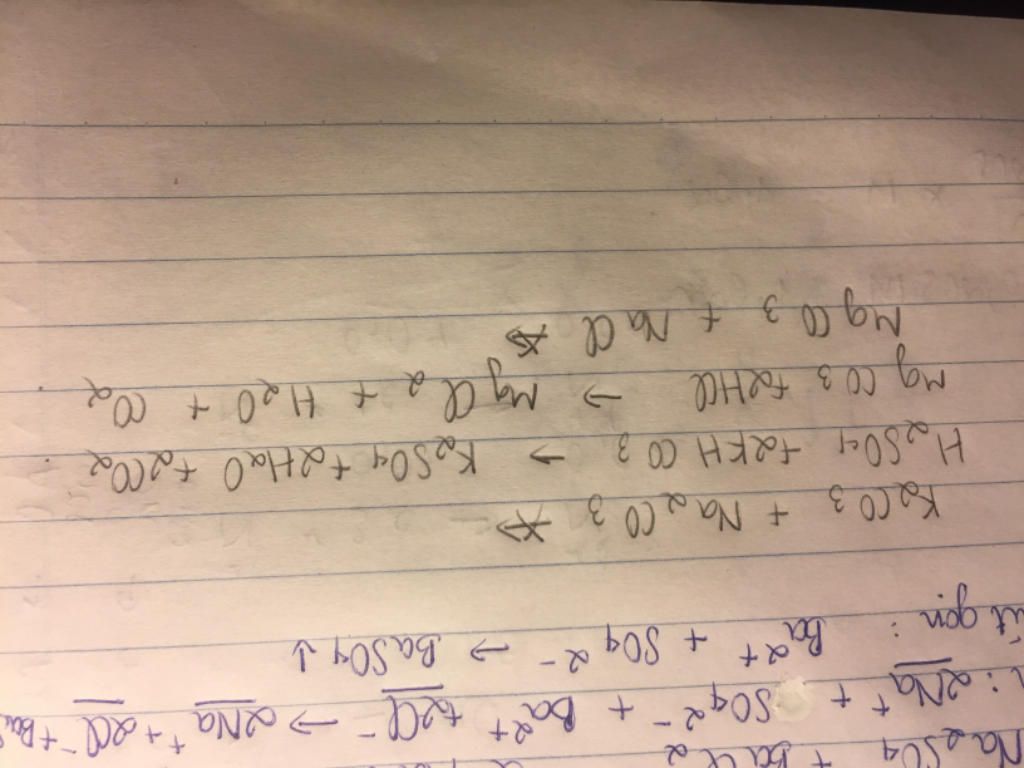 Na₂SO₄ + BaCl₂
: 2Na⁺ + SO₄²⁻ + Ba²⁺ + 2Cl⁻ → 2Na⁺ + 2Cl⁻ + Ba
út gọn : Ba²⁺ + SO₄²⁻ → BaSO₄↓
K₂CO₃ + Na₂CO₃ ↛
H₂SO₄ + 2KHCO₃ → K₂SO₄ + 2H₂O + 2CO₂.
MgCO₃ + 2HCl → MgCl₂ + H₂O + CO₂.
MgCO₃ + NaCl ↛